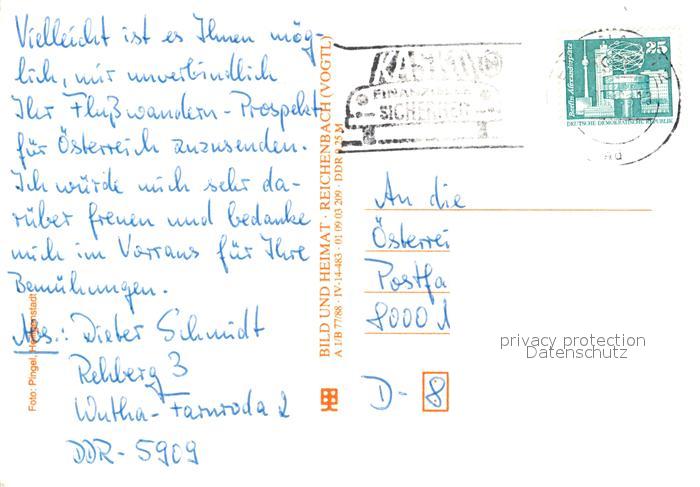 Vielleicht ist es Ihnen mög-
lich, mir unverbindlich
Ihr Flußwandern-Prospekt
für Österreich zuzusenden.
Ich würde mich sehr da-
rüber freuen und bedanke
mich im Vorraus für Ihre
Bemühungen.
Abs.: Dieter Schmidt
Rehberg 3
Wutha-Farnroda 2
DDR-5909
Foto: Pingel,
BILD UND HEIMAT · REICHENBACH (VOGTL)
A 1/B 77/88 · IV-14-483 · 01 09 03 209 · DDR 0,25 M
SICHERHEIT
Berlin, Alexanderplatz
25
DEUTSCHE DEMOKRATISCHE REPUBLIK
An die
Österrei
Postfa
8000
D-8
privacy protection
Datenschutz